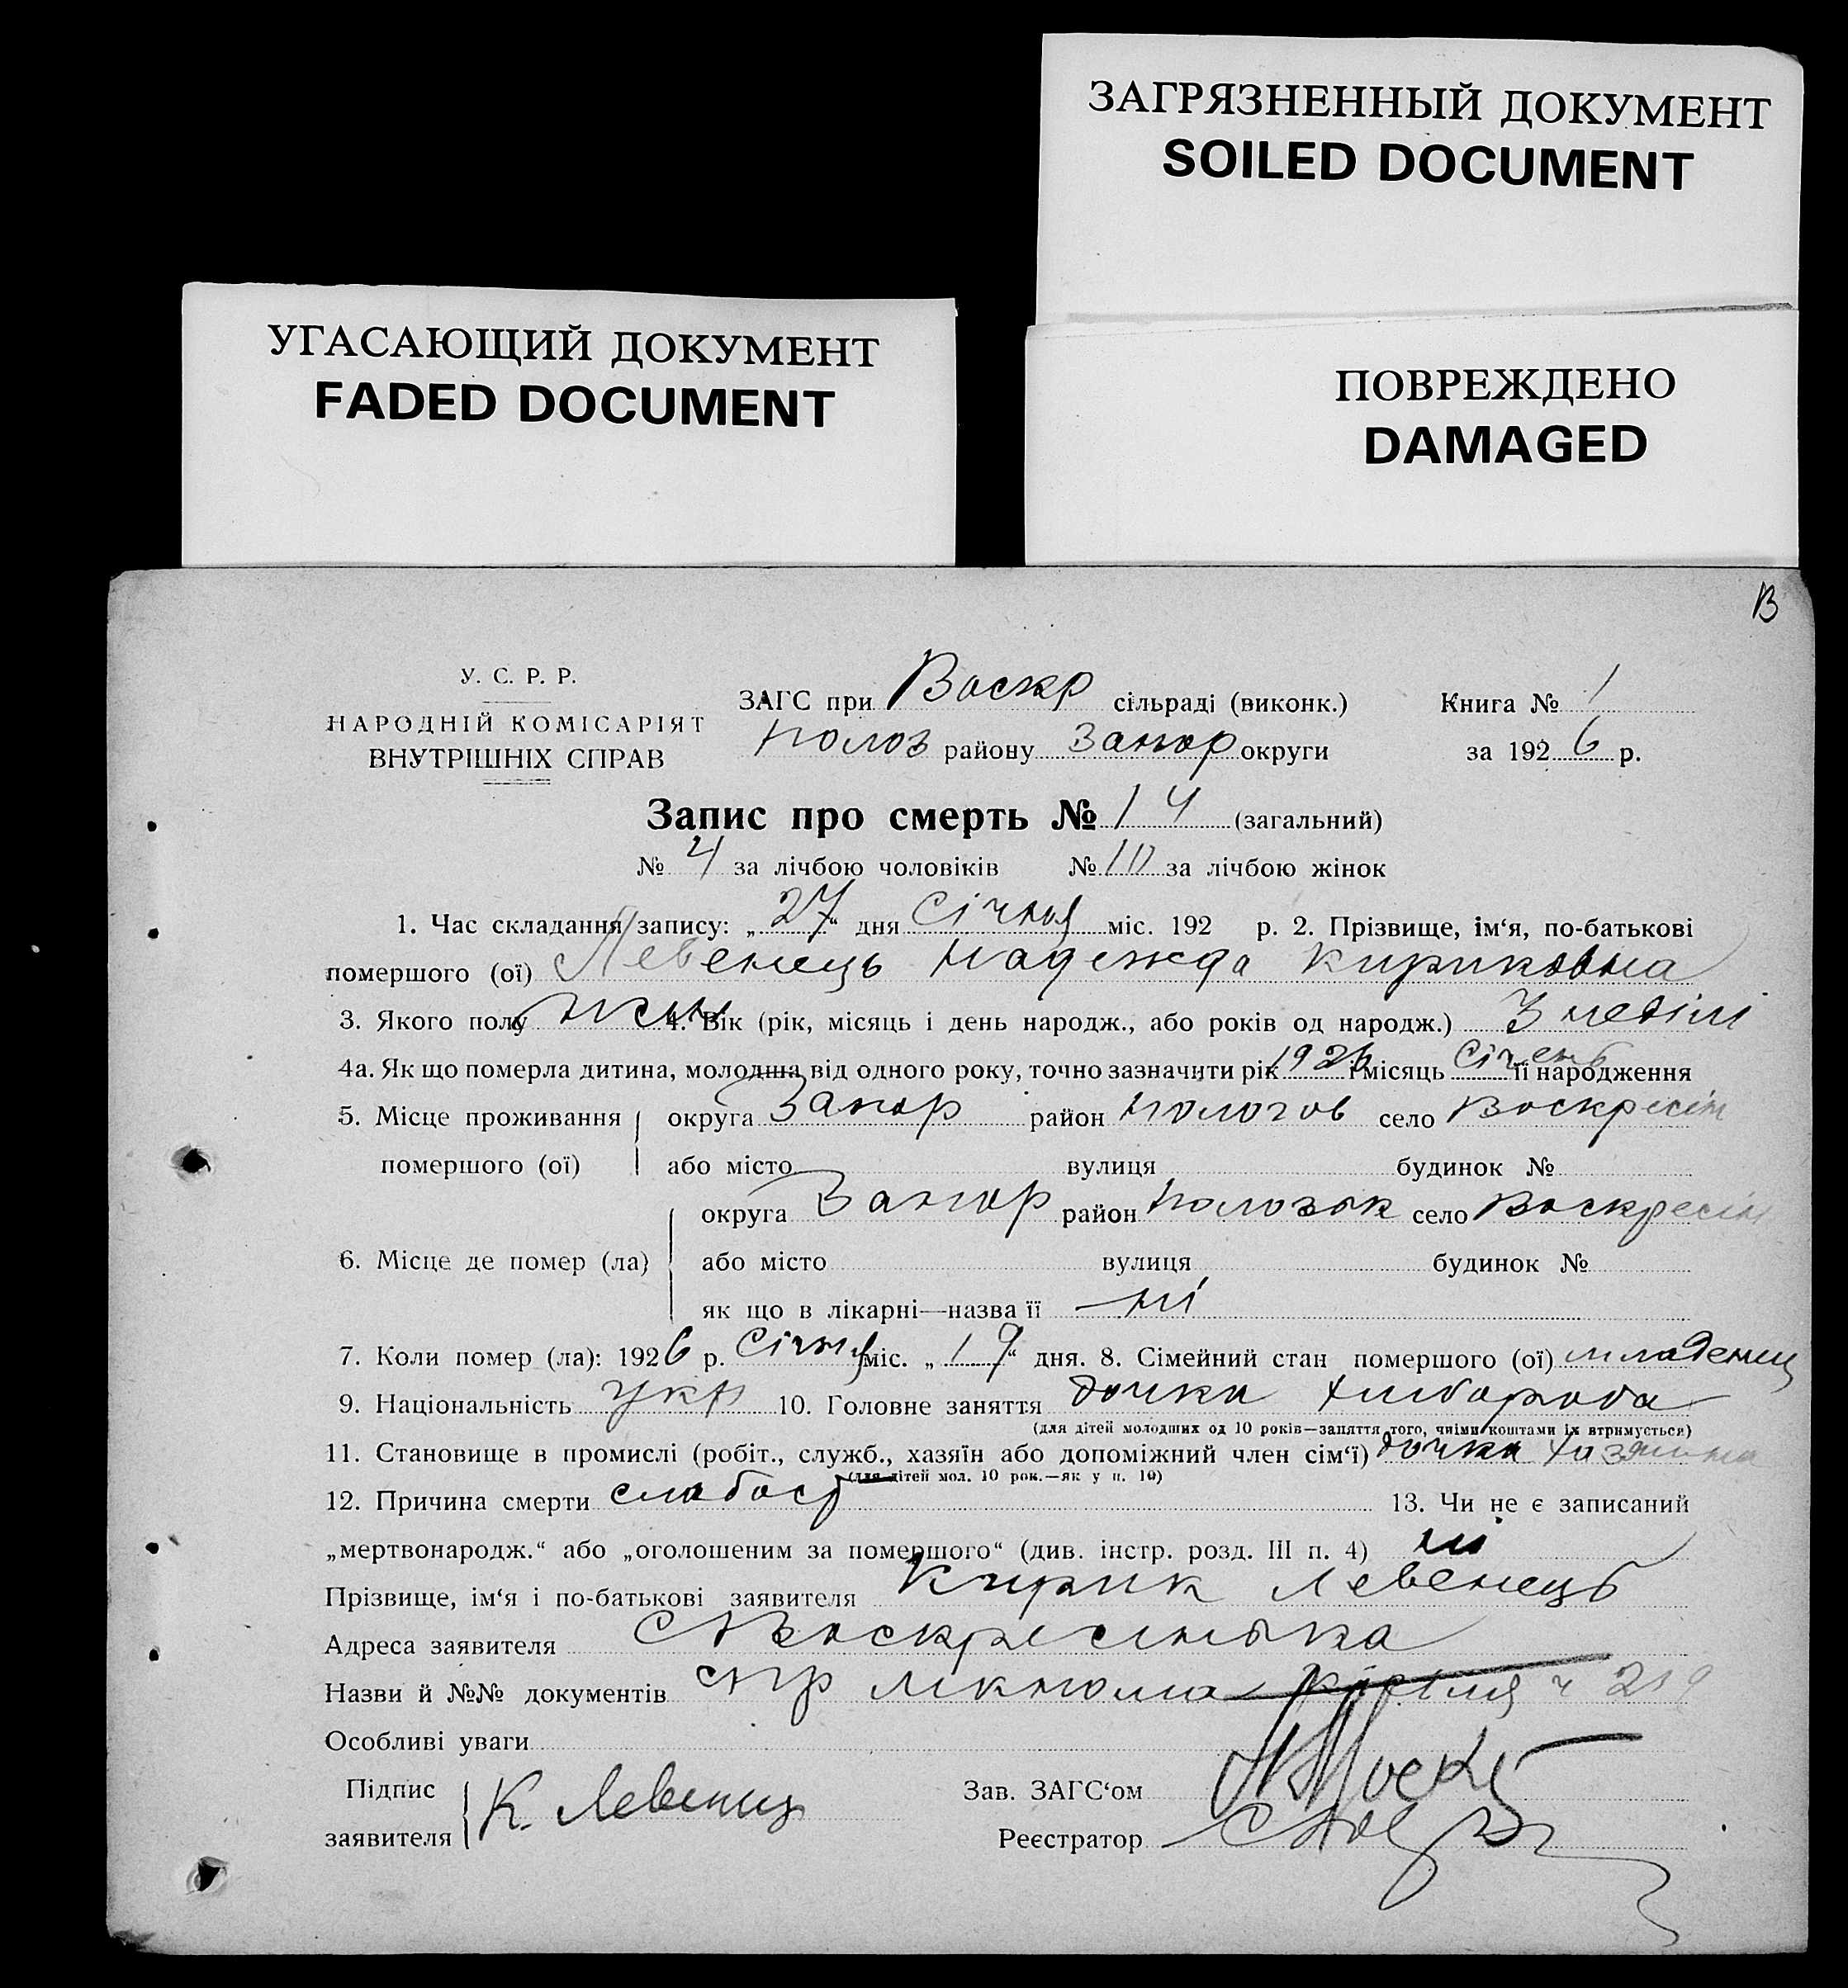 ЗАГРЯЗНЕННЫЙ ДОКУМЕНТ
SOILED DOCUMENT
УГАСАЮЩИЙ ДОКУМЕНТ
FADED DOCUMENT
ПОВРЕЖДЕНО
DAMAGED
В
У. С. Р. Р.
НАРОДНІЙ КОМІСАРІЯТ
ВНУТРІШНІХ СПРАВ
ЗАГС при Воскр сільраді (виконк.)
Полоз району Запор округи
Книга № 1
за 1926 р.
Запис про смерть № 14 (загальний)
№ 4 за лічбою чоловіків № 10 за лічбою жінок
1. Час складання запису: „27“ дня Січня міс. 192 р. 2. Прізвище, ім‘я, по-батькові
помершого (ої) Левенець Надежда Кириковна
3. Якого полу жін 4. Вік (рік, місяць і день народж., або років од народж.) 3 неділі
4а. Як що померла дитина, молодша від одного року, точно зазначити рік 1926 і місяць Січень її народження
5. Місце проживання помершого (ої) округа Запор район Пологов село Воскресін
або місто вулиця будинок №
6. Місце де помер (ла) округа Запор район село Воскресін
або місто вулиця будинок №
як що в лікарні—назва її ні
7. Коли помер (ла): 1926 р. Січня міс. „19“ дня. 8. Сімейний стан помершого (ої) младенец
9. Національність укр 10. Головне заняття дочка хлибороба
(для дітей молодших од 10 років—заняття того, чиїми коштами їх втримується)
11. Становище в промислі (робіт., служб., хазяїн або допоміжний член сім‘ї) дочка хазяина
(для дітей мол. 10 рок.—як у п. 10)
12. Причина смерти слабост 13. Чи не є записаний
„мертвонародж.“ або „оголошеним за помершого“ (див. інстр. розд. III п. 4) ні
Прізвище, ім‘я і по-батькові заявителя Кирик Левенець
Адреса заявителя С Воскресенька
Назви й №№ документів
Особливі уваги
Підпис заявителя К. Левенец
Зав. ЗАГС‘ом
Реєстратор